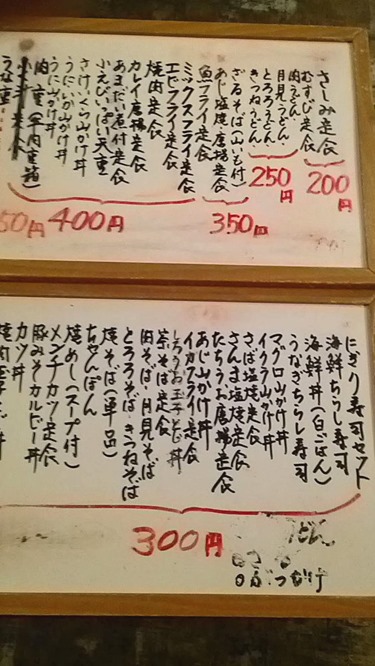 さしみ定食
むすび定食
200円
肉うどん
月見うどん・
とろろうどん
きつねうどん
250円
ざるそば(山いも付)
あじ塩焼・唐揚定食
魚フライ定食
350円
ミックスフライ定食
エビフライ定食
焼肉定食
カレイ唐揚定食
あまだい煮付定食
小えびいっぱい天重
さけいくら山かけ丼
うにいか山かけ丼
うに山かけ丼
肉重(牛肉重箱)
400円
うな重
50円
にぎり寿司セット
海鮮ちらし寿司
海鮮丼(白ごはん)
うなぎちらし寿司
マグロ山かけ丼
イクラ山かけ丼
さば塩焼定食
さんま塩焼定食
たちうお唐揚定食
あじ山かけ丼
イカフライ定食
しらうお玉子とじ丼
茶そば定食
肉そば・月見そば
とろろそば・きつねそば
焼そば(単品)
ちゃんぽん
焼めし(スープ付)
メンチカツ定食
豚みそカルビー丼
カツ丼
300円